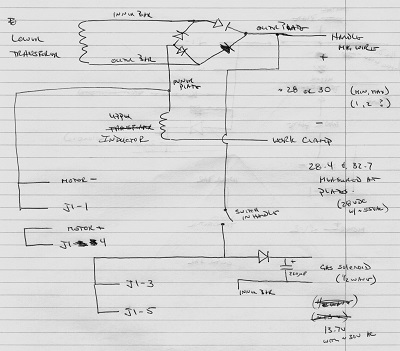 INNER BAR
OUTER PLATE
LOWER
TRANSFORMER
HANDLE
MIG WIRE
+
OUTER BAR
INNER
PLATE
28 OR 30
(MIN, MAX)
(1, 2 ?)
UPPER
INDUCTOR
-
WORK CLAMP
28.4 & 32.7
MEASURED AT
PLATES.
MOTOR -
J1-1
SWITCH
IN HANDLE
MOTOR +
J1-4
+
GAS SOLENOID
J1-3
INNER BAR
J1-5
13.7V